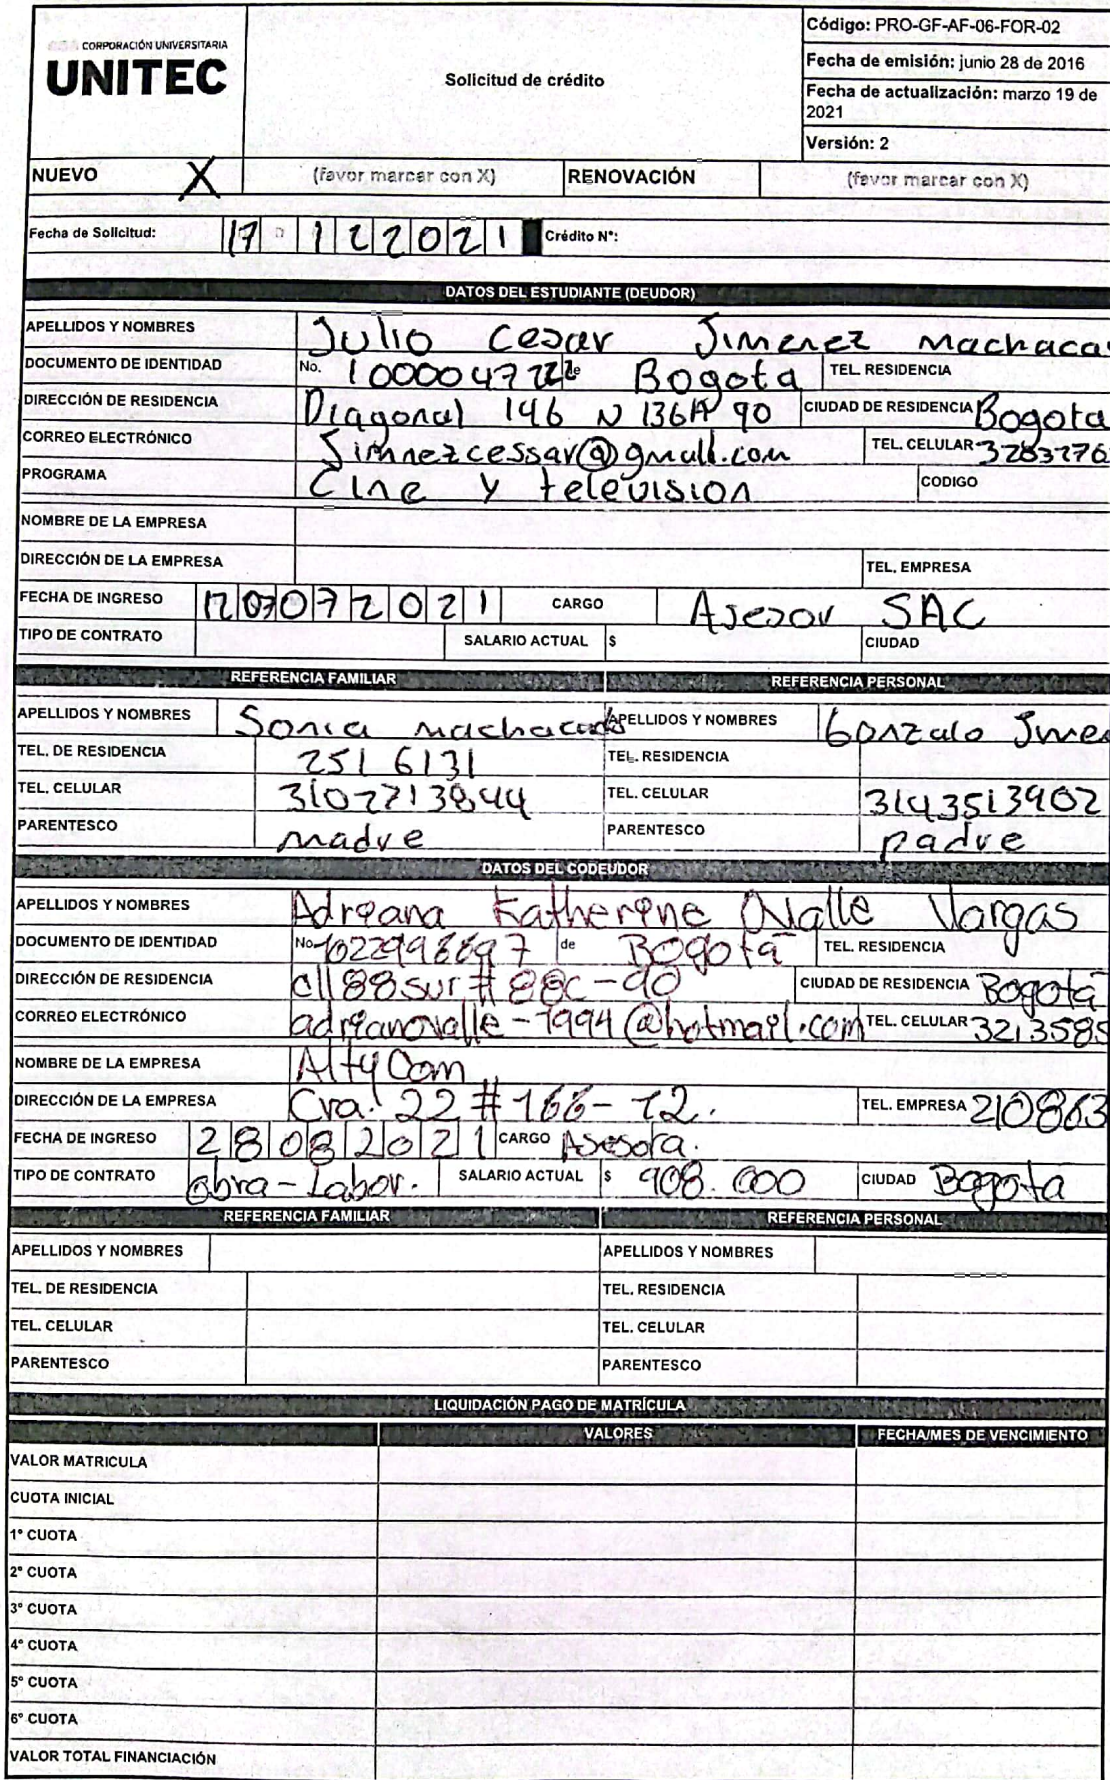 CORPORACIÓN UNIVERSITARIA
UNITEC
Solicitud de crédito
Código: PRO-GF-AF-06-FOR-02
Fecha de emisión: junio 28 de 2016
Fecha de actualización: marzo 19 de
2021
Versión: 2
NUEVO X (favor marcar con X) RENOVACIÓN (favor marcar con X)
Fecha de Solicitud: 17 12 2021 Crédito N°:
DATOS DEL ESTUDIANTE (DEUDOR)
APELLIDOS Y NOMBRES Julio Cesar Jimenez Machaca
DOCUMENTO DE IDENTIDAD No. de Bogota TEL. RESIDENCIA
DIRECCIÓN DE RESIDENCIA Diagonal 146 N 136A 90 CIUDAD DE RESIDENCIA Bogota
CORREO ELECTRÓNICO Jimnezcessar@gmail.com TEL. CELULAR 3283276
PROGRAMA Cine y television CODIGO
NOMBRE DE LA EMPRESA
DIRECCIÓN DE LA EMPRESA TEL. EMPRESA
FECHA DE INGRESO 072021 CARGO Asesor SAC
TIPO DE CONTRATO SALARIO ACTUAL $ CIUDAD
REFERENCIA FAMILIAR REFERENCIA PERSONAL
APELLIDOS Y NOMBRES Sonia APELLIDOS Y NOMBRES Gonzalo
TEL. DE RESIDENCIA 251 6131 TEL. RESIDENCIA
TEL. CELULAR 3102713844 TEL. CELULAR 3143513902
PARENTESCO madre PARENTESCO padre
DATOS DEL CODEUDOR
APELLIDOS Y NOMBRES Adriana Katherine Ovalle Vargas
DOCUMENTO DE IDENTIDAD No. 1022998697 de Bogotá TEL. RESIDENCIA
DIRECCIÓN DE RESIDENCIA cll 88 sur # 88c-90 CIUDAD DE RESIDENCIA Bogotá
CORREO ELECTRÓNICO adrianovalle-1994@hotmail.com TEL. CELULAR 3213585
NOMBRE DE LA EMPRESA AltyCom
DIRECCIÓN DE LA EMPRESA Cra. 22 # 166-12. TEL. EMPRESA 210863
FECHA DE INGRESO 28082021 CARGO Asesora.
TIPO DE CONTRATO obra-Labor. SALARIO ACTUAL $ 908.000 CIUDAD Bogota
REFERENCIA FAMILIAR REFERENCIA PERSONAL
APELLIDOS Y NOMBRES APELLIDOS Y NOMBRES
TEL. DE RESIDENCIA TEL. RESIDENCIA
TEL. CELULAR TEL. CELULAR
PARENTESCO PARENTESCO
LIQUIDACIÓN PAGO DE MATRÍCULA
VALORES FECHA/MES DE VENCIMIENTO
VALOR MATRICULA
CUOTA INICIAL
1° CUOTA
2° CUOTA
3° CUOTA
4° CUOTA
5° CUOTA
6° CUOTA
VALOR TOTAL FINANCIACIÓN